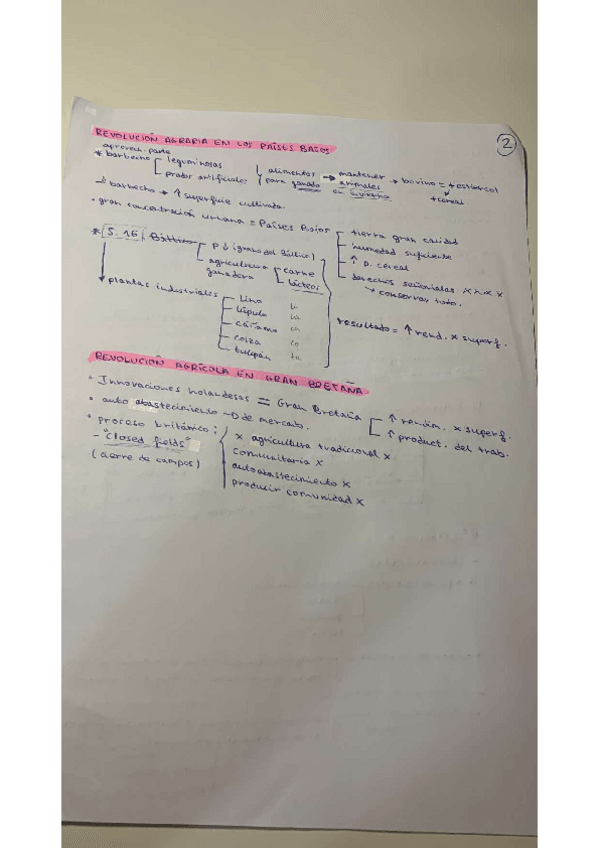 2
REVOLUCIÓN AGRARIA EN LOS PAÍSES BAJOS
aprovech. parte
* barbecho leguminosas
prados artificiales
alimentos
para ganado
→ mantener
animales
en
→ bovino = + estiércol
+ cereal
barbecho → ↑ superficie cultivada
• gran concentración urbana = Países Bajos
tierra gran calidad
humedad suficiente
↑ p. cereal
derechos señoriales x x x x
conservar todo.
* S. 16 Báltico
P ↓ (grano del Báltico)
agricultura
ganadera
carne
lácteos
* plantas industriales
Lino
Lúpulo
cáñamo
colza
tulipán
resultado = ↑ rend. x superf.
REVOLUCIÓN AGRÍCOLA EN GRAN BRETAÑA
• Innovaciones holandesas = Gran Bretaña
↑ rendim. x superf.
↑ product. del trab.
• auto abastecimiento → de mercado.
• proceso británico:
- "closed fields"
(cierre de campos)
x agricultura tradicional x
comunitaria x
autoabastecimiento x
producir comunidad x